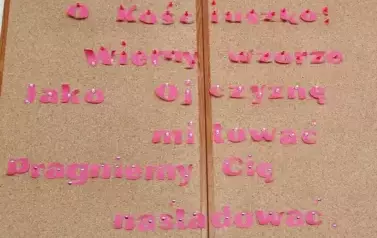 O Kościuszko!
Wierny wzorze
Jako Ojczyznę
miłować
Pragniemy Cię
naśladować